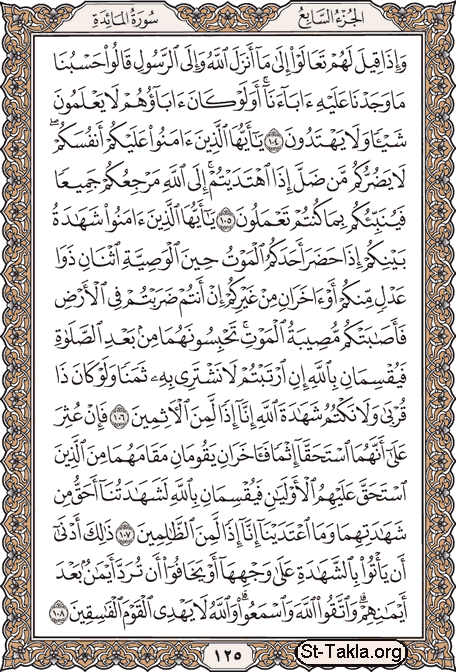 الجزء السابع
سورة المائدة
وَإِذَا قِيلَ لَهُمْ تَعَالَوْا۟ إِلَىٰ مَآ أَنزَلَ ٱللَّهُ وَإِلَى ٱلرَّسُولِ قَالُوا۟ حَسْبُنَا
مَا وَجَدْنَا عَلَيْهِ ءَابَآءَنَآ ۚ أَوَلَوْ كَانَ ءَابَآؤُهُمْ لَا يَعْلَمُونَ
شَيْـًٔا وَلَا يَهْتَدُونَ ١٠٤ يَـٰٓأَيُّهَا ٱلَّذِينَ ءَامَنُوا۟ عَلَيْكُمْ أَنفُسَكُمْ ۖ
لَا يَضُرُّكُم مَّن ضَلَّ إِذَا ٱهْتَدَيْتُمْ ۚ إِلَى ٱللَّهِ مَرْجِعُكُمْ جَمِيعًا
فَيُنَبِّئُكُم بِمَا كُنتُمْ تَعْمَلُونَ ١٠٥ يَـٰٓأَيُّهَا ٱلَّذِينَ ءَامَنُوا۟ شَهَـٰدَةُ
بَيْنِكُمْ إِذَا حَضَرَ أَحَدَكُمُ ٱلْمَوْتُ حِينَ ٱلْوَصِيَّةِ ٱثْنَانِ ذَوَا
عَدْلٍ مِّنكُمْ أَوْ ءَاخَرَانِ مِنْ غَيْرِكُمْ إِنْ أَنتُمْ ضَرَبْتُمْ فِى ٱلْأَرْضِ
فَأَصَـٰبَتْكُم مُّصِيبَةُ ٱلْمَوْتِ ۚ تَحْبِسُونَهُمَا مِنۢ بَعْدِ ٱلصَّلَوٰةِ
فَيُقْسِمَانِ بِٱللَّهِ إِنِ ٱرْتَبْتُمْ لَا نَشْتَرِى بِهِۦ ثَمَنًا وَلَوْ كَانَ ذَا
قُرْبَىٰ ۙ وَلَا نَكْتُمُ شَهَـٰدَةَ ٱللَّهِ إِنَّآ إِذًا لَّمِنَ ٱلْـَٔاثِمِينَ ١٠٦ فَإِنْ عُثِرَ
عَلَىٰٓ أَنَّهُمَا ٱسْتَحَقَّآ إِثْمًا فَـَٔاخَرَانِ يَقُومَانِ مَقَامَهُمَا مِنَ ٱلَّذِينَ
ٱسْتَحَقَّ عَلَيْهِمُ ٱلْأَوْلَيَـٰنِ فَيُقْسِمَانِ بِٱللَّهِ لَشَهَـٰدَتُنَآ أَحَقُّ مِن
شَهَـٰدَتِهِمَا وَمَا ٱعْتَدَيْنَآ إِنَّآ إِذًا لَّمِنَ ٱلظَّـٰلِمِينَ ١٠٧ ذَٰلِكَ أَدْنَىٰٓ
أَن يَأْتُوا۟ بِٱلشَّهَـٰدَةِ عَلَىٰ وَجْهِهَآ أَوْ يَخَافُوٓا۟ أَن تُرَدَّ أَيْمَـٰنٌۢ بَعْدَ
أَيْمَـٰنِهِمْ ۗ وَٱتَّقُوا۟ ٱللَّهَ وَٱسْمَعُوا۟ ۗ وَٱللَّهُ لَا يَهْدِى ٱلْقَوْمَ ٱلْفَـٰسِقِينَ ١٠٨
١٢٥
St-Takla.org